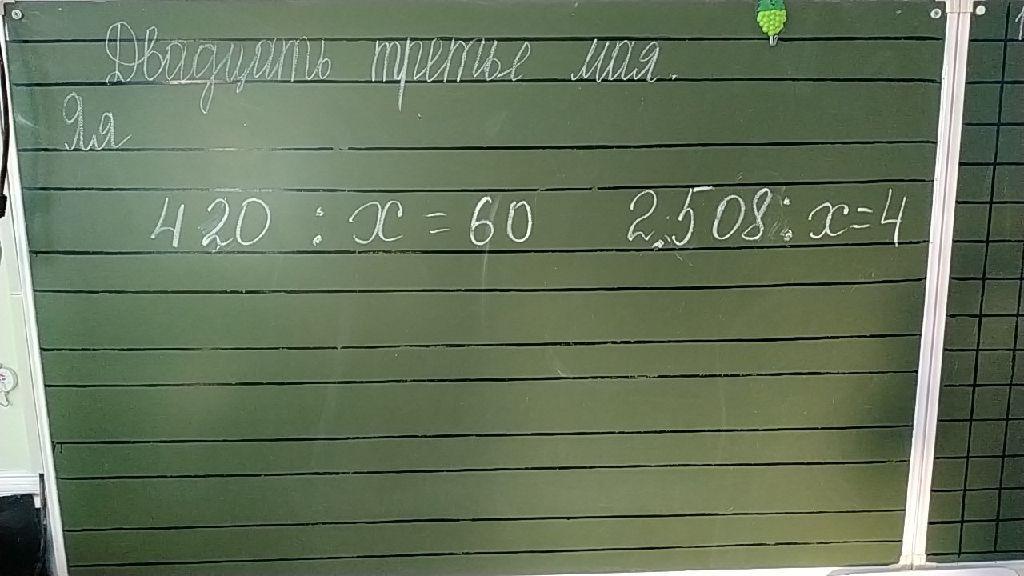 Двадцать третье мая.
Яя
420 : x = 60 2.508 : x = 4